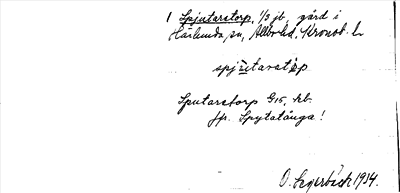 1 Spjutarstorp, 1/3 jb, gård i
Härlunda sn, Allbo hd, Kronob. l.
spjūtarstòp
Sputarstorp G15, hb.
jfr. Spytatånga!
O. Segerbäck 1934.